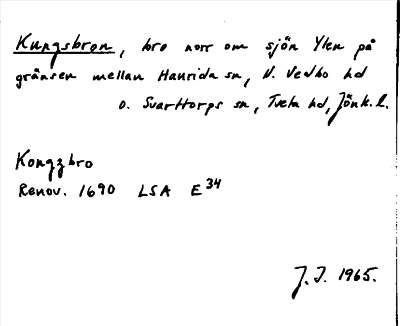 Kungsbron, bro norr om sjön Ylen på
gränsen mellan Haurida sn, N. Vedbo hd
o. Svarttorps sn, Tveta hd, Jönk.l.
Kongzbro
Renov. 1690 LSA E34
J.I. 1965.